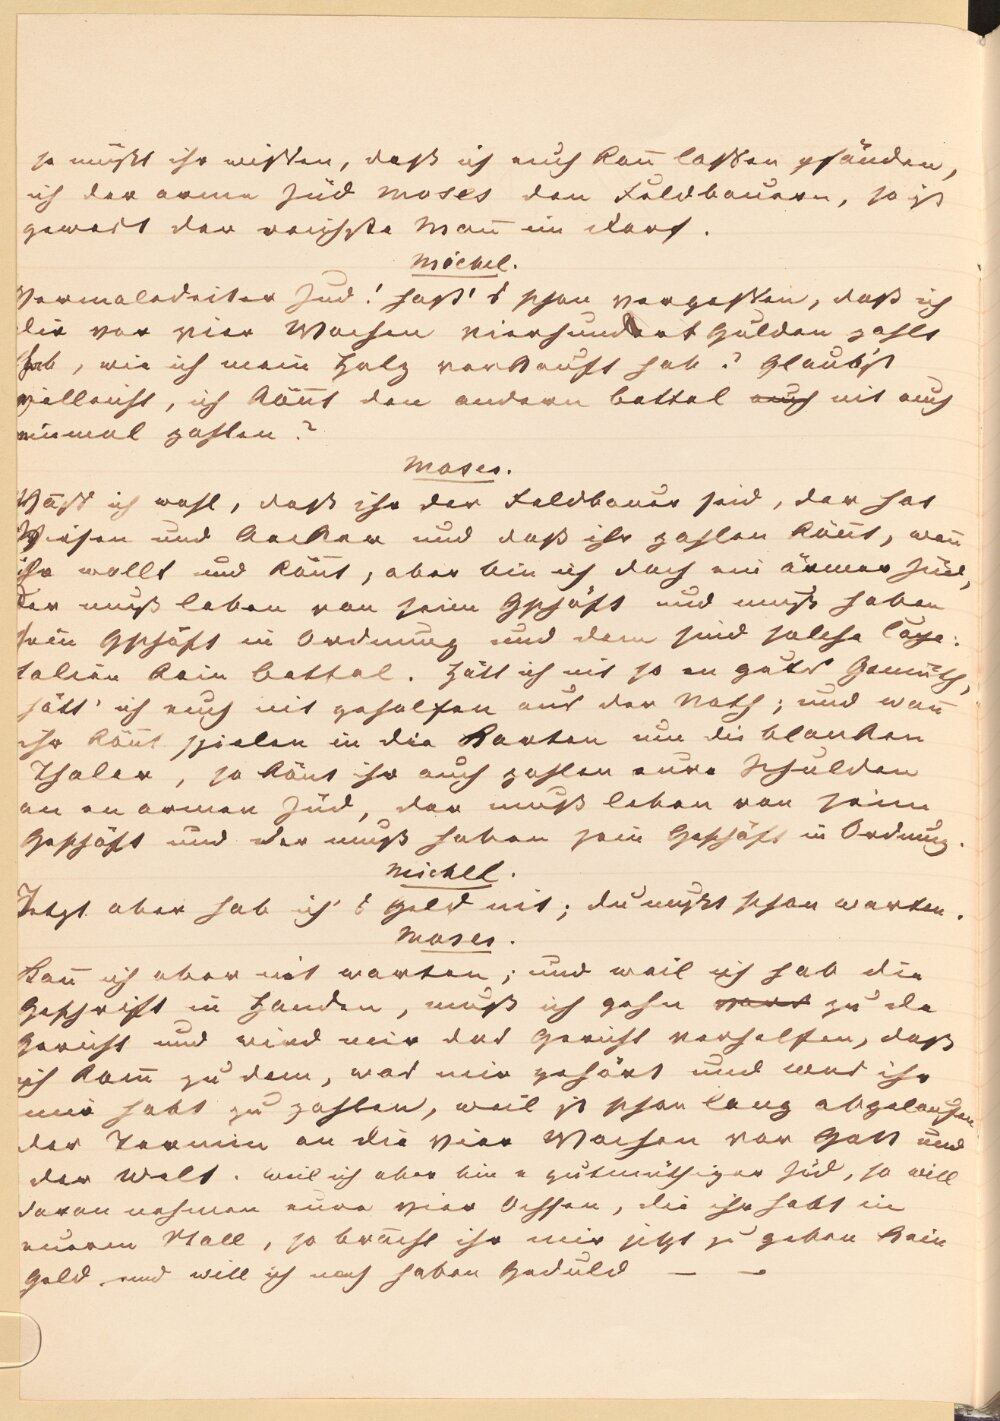 so müßt ihr wissen, daß ich euch kañ lassen pfänden,
ich der arme Jüd Moses den Feldbauern, so is
gewest der reichste Mañ im Dorf.
Michel.
Vermaledeiter Jud! hast's schon vergessen, daß ich
dir vor vier Wochen vierhundert Gulden zahlt
hab, wie ich mein Holz verkauft hab? Glaub'st
vielleicht, ich köñt den andern Bettel auch nit auch
einmal zahlen?
Moses.
Waß ich wohl, daß ihr der Feldbauer seid, der hat
Wiesen und Aecker und daß ihr zahlen köñt, weñ
ihr wollt und köñt, aber bin ich doch ein ärmer Jüd,
der muß leben von seim Gschäft und muß haben
sein Gschäft in Ordnung und dem sind solche
talien kein Bettel. Hätt ich nit so en gut's Gemüth,
hätt' ich euch nit geholfen aus der Noth; und wañ
ihr köñt spielen in die Karten um die blanken
Thaler, so köñt ihr auch zahlen eure Schulden
an en armen Jüd, der muß leben von seim
Geschäft und der muß haben sein Geschäft in Ordnung.
Michel.
Jetzt aber hab ich's Geld nit; du mußt schon warten.
Moses.
Kañ ich aber nit warten; und weil ich hab die
Geschrift in Handen, muß ich gehn vors zu de
Gericht und wird mir das Gericht verhelfen, daß
ich kom̃ zu dem, was mir gehört und was ihr
mir habt zu zahlen, weil is schon lang abgelaufen
der Termin an die vier Wochen vor Gott und
der Welt. weil ich aber bin e gutmüthiger Jüd, so will
daran nehmen eure vier Ochsen, die ihr habt in
eurem Stall, so braucht ihr mir jetzt zu geben kein
Geld und will ich noch haben Geduld — —